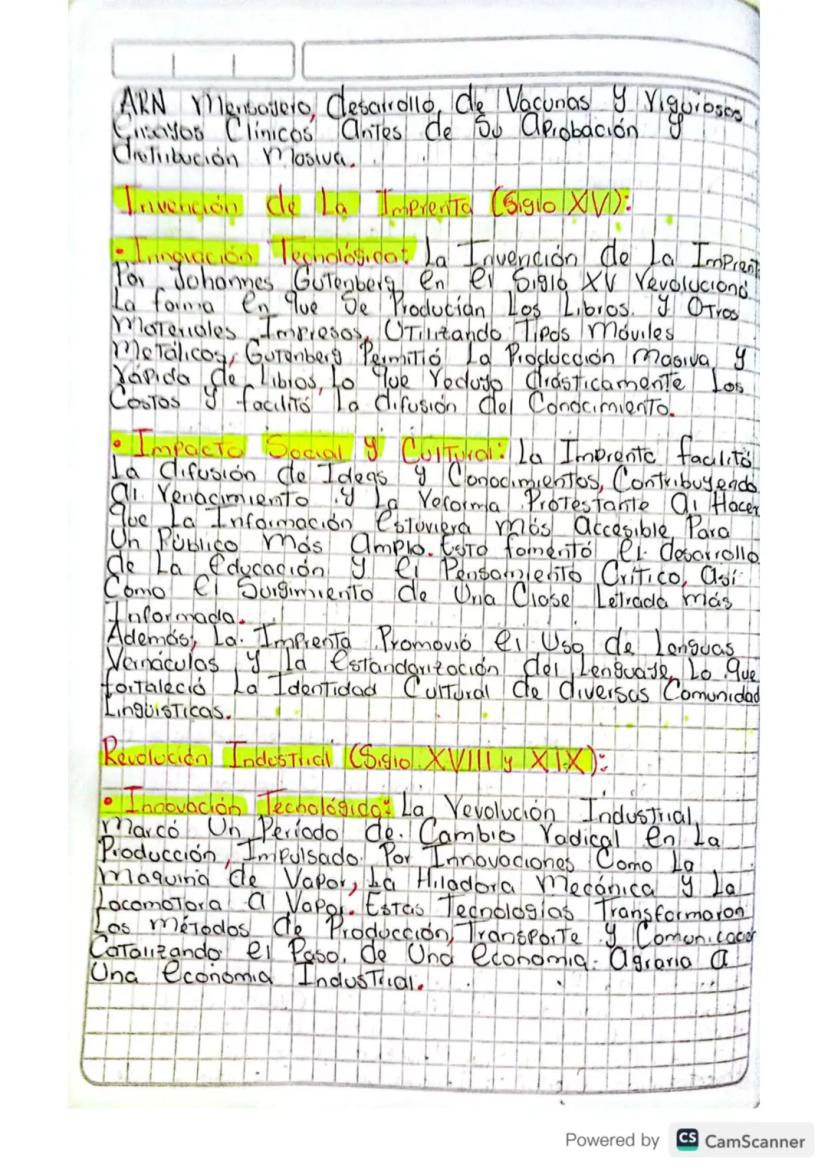 ARN Mensajero, desarrollo de Vacunas y Vigurosos
Ensayos Clínicos antes de su aprobación y
distribución Masiva.
Invención de La Imprenta (Siglo XV):
• Innovación Tecnológica: La Invención de La Imprent
Por Johannes Gutenberg en el Siglo XV Revolucionó
La forma en que Se Producían Los Libros y Otros
Materiales Impresos, Utilizando Tipos Móviles
Metálicos, Gutenberg Permitió La Producción Masiva y
Rápida de Libros, Lo que Redujo drásticamente Los
Costos y facilitó La difusión del Conocimiento.
• Impacto Social y Cultural: La Imprenta facilitó
La difusión de Ideas y Conocimientos, Contribuyendo
al Renacimiento y La Reforma Protestante al Hacer
que La Información estuviera más accesible Para
Un Público más amplio. Esto fomentó el desarrollo
de La educación y el Pensamiento Crítico, así
Como el Surgimiento de Una Clase Letrada más
Informada.
Además, La Imprenta Promovió el Uso de Lenguas
Vernáculas y La estandarización del Lenguaje, Lo que
fortaleció La Identidad Cultural de diversas Comunidad
Lingüísticas.
Revolución Industrial (Siglo XVIII y XIX):
• Innovación Tecnológica: La Revolución Industrial
Marcó Un Período de Cambio Radical en La
Producción, Impulsado Por Innovaciones Como La
Maquina de Vapor, La Hiladora Mecánica y La
Locomotora a Vapor. Estas Tecnologías Transformaron
Los métodos de Producción, Transporte y Comunicación
Catalizando el Paso de Una economía agraria a
Una economía Industrial.
Powered by CS CamScanner